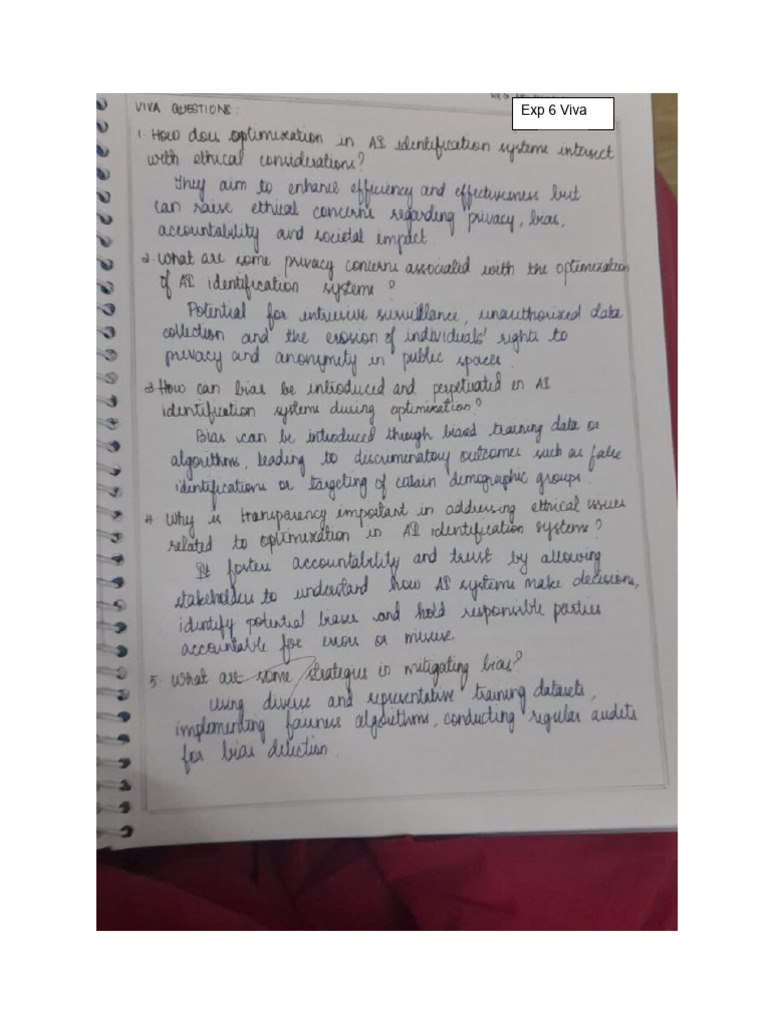 Exp 6 Viva
VIVA QUESTIONS:
1. How does optimization in AI identification systems intersect
with ethical considerations?
They aim to enhance efficiency and effectiveness but
can raise ethical concerns regarding privacy, bias,
accountability and societal impact.
2. What are some privacy concerns associated with the optimization
of AI identification systems?
Potential for intrusive surveillance, unauthorized data
collection and the erosion of individuals' rights to
privacy and anonymity in public spaces.
3. How can bias be introduced and perpetivated in AI
identification systems during optimization?
Bias can be introduced through biased training data or
algorithms, leading to discriminatory outcomes such as false
identifications or targeting of certain demographic groups.
4. Why is transparency important in addressing ethical issues
related to optimization in AI identification systems?
It fosters accountability and trust by allowing
stakeholders to understand how AI systems make decisions,
identify potential biases and hold responsible parties
accountable for errors or misuse.
5. What are some strategies in mitigating bias?
Using diverse and representative training datasets,
implementing fairness algorithms, conducting regular audits
for bias detection.